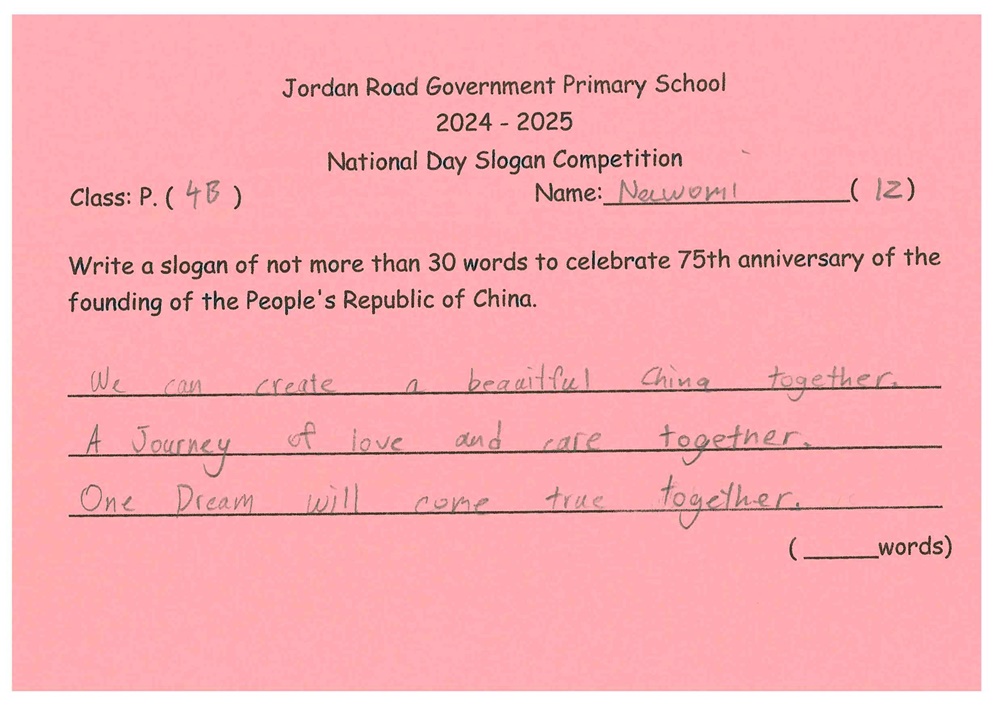 Jordan Road Government Primary School
2024 - 2025
National Day Slogan Competition
Class: P. ( 4B ) Name: Nawomi ( 12 )
Write a slogan of not more than 30 words to celebrate 75th anniversary of the
founding of the People's Republic of China.
We can create a beauitful China together.
A Journey of love and care together.
One Dream will come true together.
( ______words)